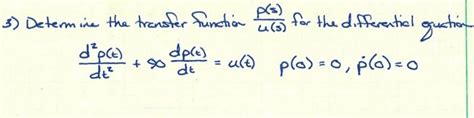 3) Determine the transfer function P(s)/U(s) for the differential equation
d²p(t)/dt² + 50 dp(t)/dt = u(t)   p(0) = 0, ṗ(0) = 0